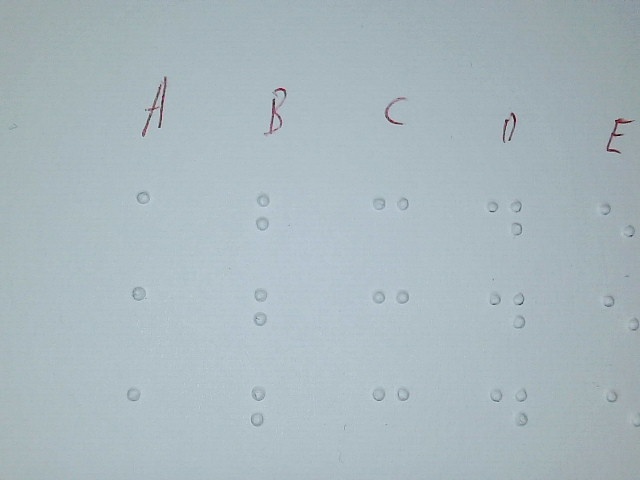 A B C D E
⠁ ⠃ ⠉ ⠙ ⠑
⠁ ⠃ ⠉ ⠙ ⠑
⠁ ⠃ ⠉ ⠙ ⠑